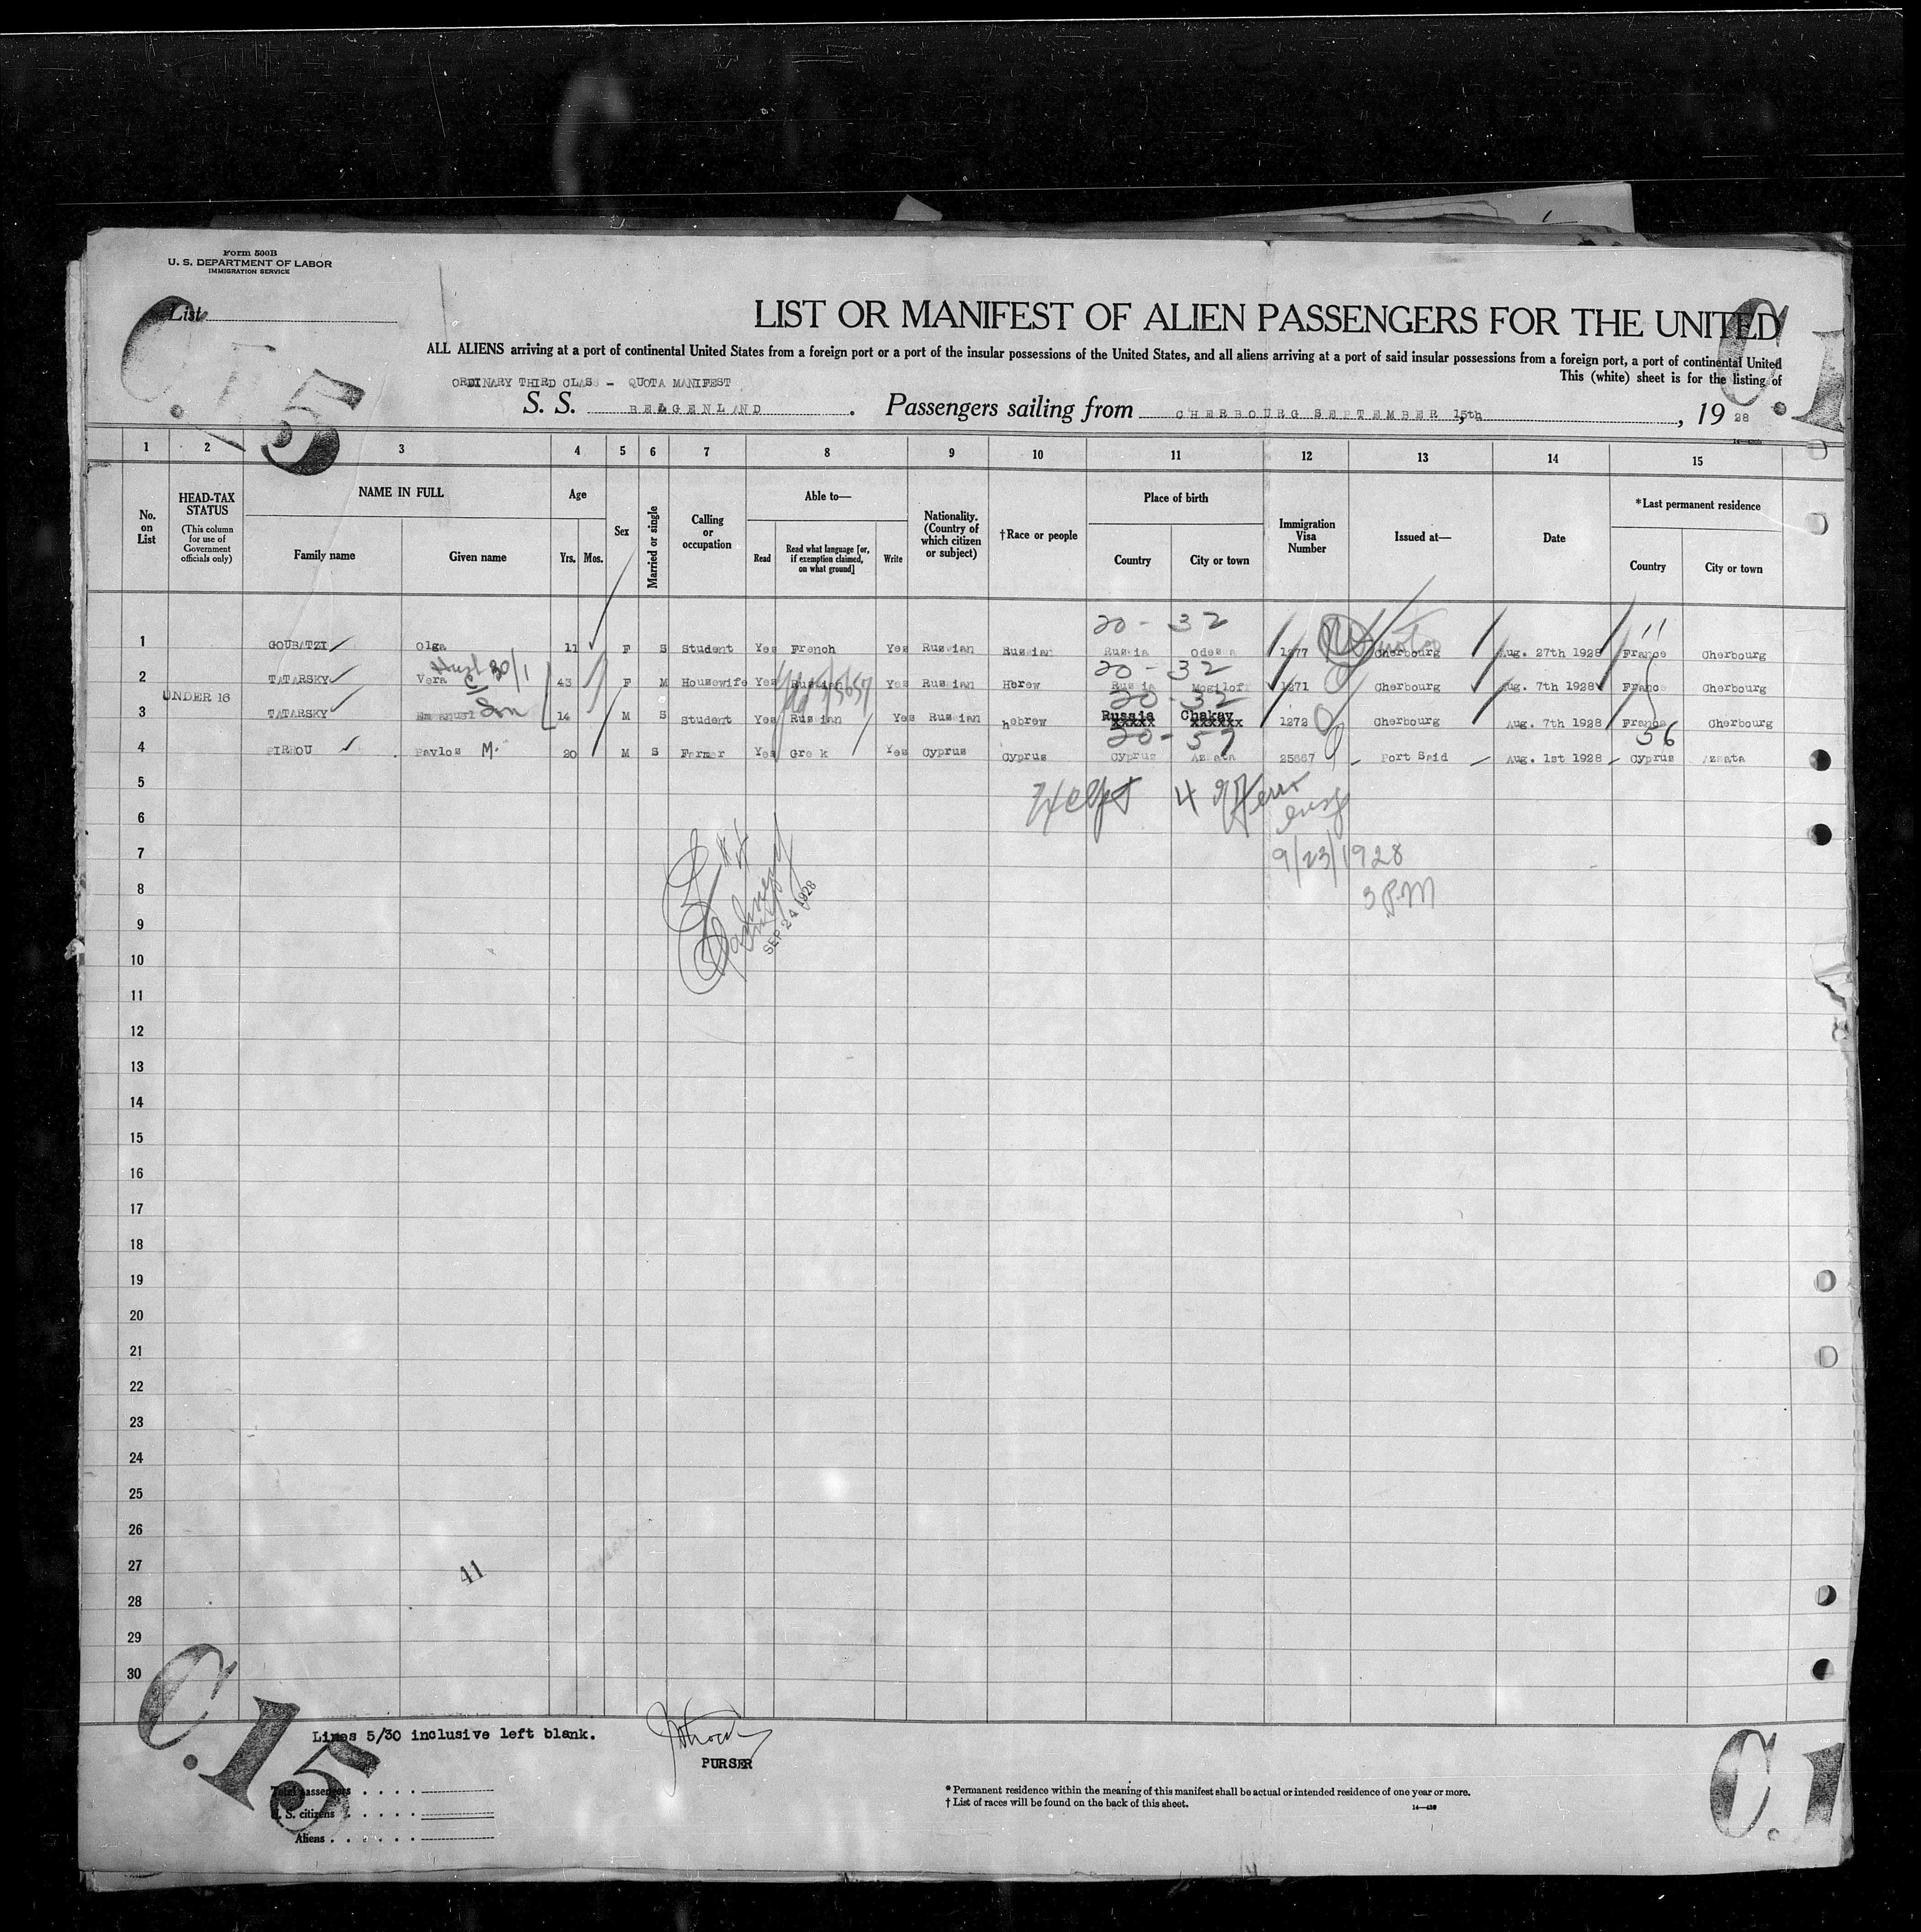 Form 500B
U. S. DEPARTMENT OF LABOR
IMMIGRATION SERVICE
List
C.15
C.1
LIST OR MANIFEST OF ALIEN PASSENGERS FOR THE UNITED
ALL ALIENS arriving at a port of continental United States from a foreign port or a port of the insular possessions of the United States, and all aliens arriving at a port of said insular possessions from a foreign port, a port of continental United
This (white) sheet is for the listing of
ORDINARY THIRD CLASS - QUOTA MANIFEST
S. S. BELGENLAND. Passengers sailing from CHERBOURG SEPTEMBER 15th, 19 28
1 2 3 4 5 6 7 8 9 10 11 12 13 14 15
No. on List
HEAD-TAX STATUS
(This column for use of Government officials only)
NAME IN FULL
Family name Given name
Age
Yrs. Mos.
Sex
Married or single
Calling or occupation
Able to—
Read
Read what language [or, if exemption claimed, on what ground]
Write
Nationality. (Country of which citizen or subject)
†Race or people
Place of birth
Country City or town
Immigration Visa Number
Issued at—
Date
*Last permanent residence
Country City or town
20 - 32 11
1 GOUBATZI Olga 11 F S Student Yes French Yes Russian Russian Russia Odessa 1277 Cherbourg Aug. 27th 1928 France Cherbourg
30/1 20 - 32
2 TATARSKY Vera 43 F M Housewife Yes Russian Yes Russian Hebrew Russia Mogiloff 1271 Cherbourg Aug. 7th 1928 France Cherbourg
UNDER 16 Son 20 - 32
3 TATARSKY Emanuel 14 M S Student Yes Russian Yes Russian hebrew Russia Chakay 1272 Cherbourg Aug. 7th 1928 France Cherbourg
xxxxx xxxxxx
20 - 57 56
4 PIRHOU Pavlos M. 20 M S Farmer Yes Greek Yes Cyprus Cyprus Cyprus Azzata 25667 Port Said Aug. 1st 1928 Cyprus Azzata
5
6
7
9/23/1928
8
3 PM
9
SEP 24 1928
10
11
12
13
14
15
16
17
18
19
20
21
22
23
24
25
26
27
41
28
29
30
C.15
C.1
Lines 5/30 inclusive left blank.
PURSER
Total passengers
U. S. citizens
Aliens
* Permanent residence within the meaning of this manifest shall be actual or intended residence of one year or more.
† List of races will be found on the back of this sheet.